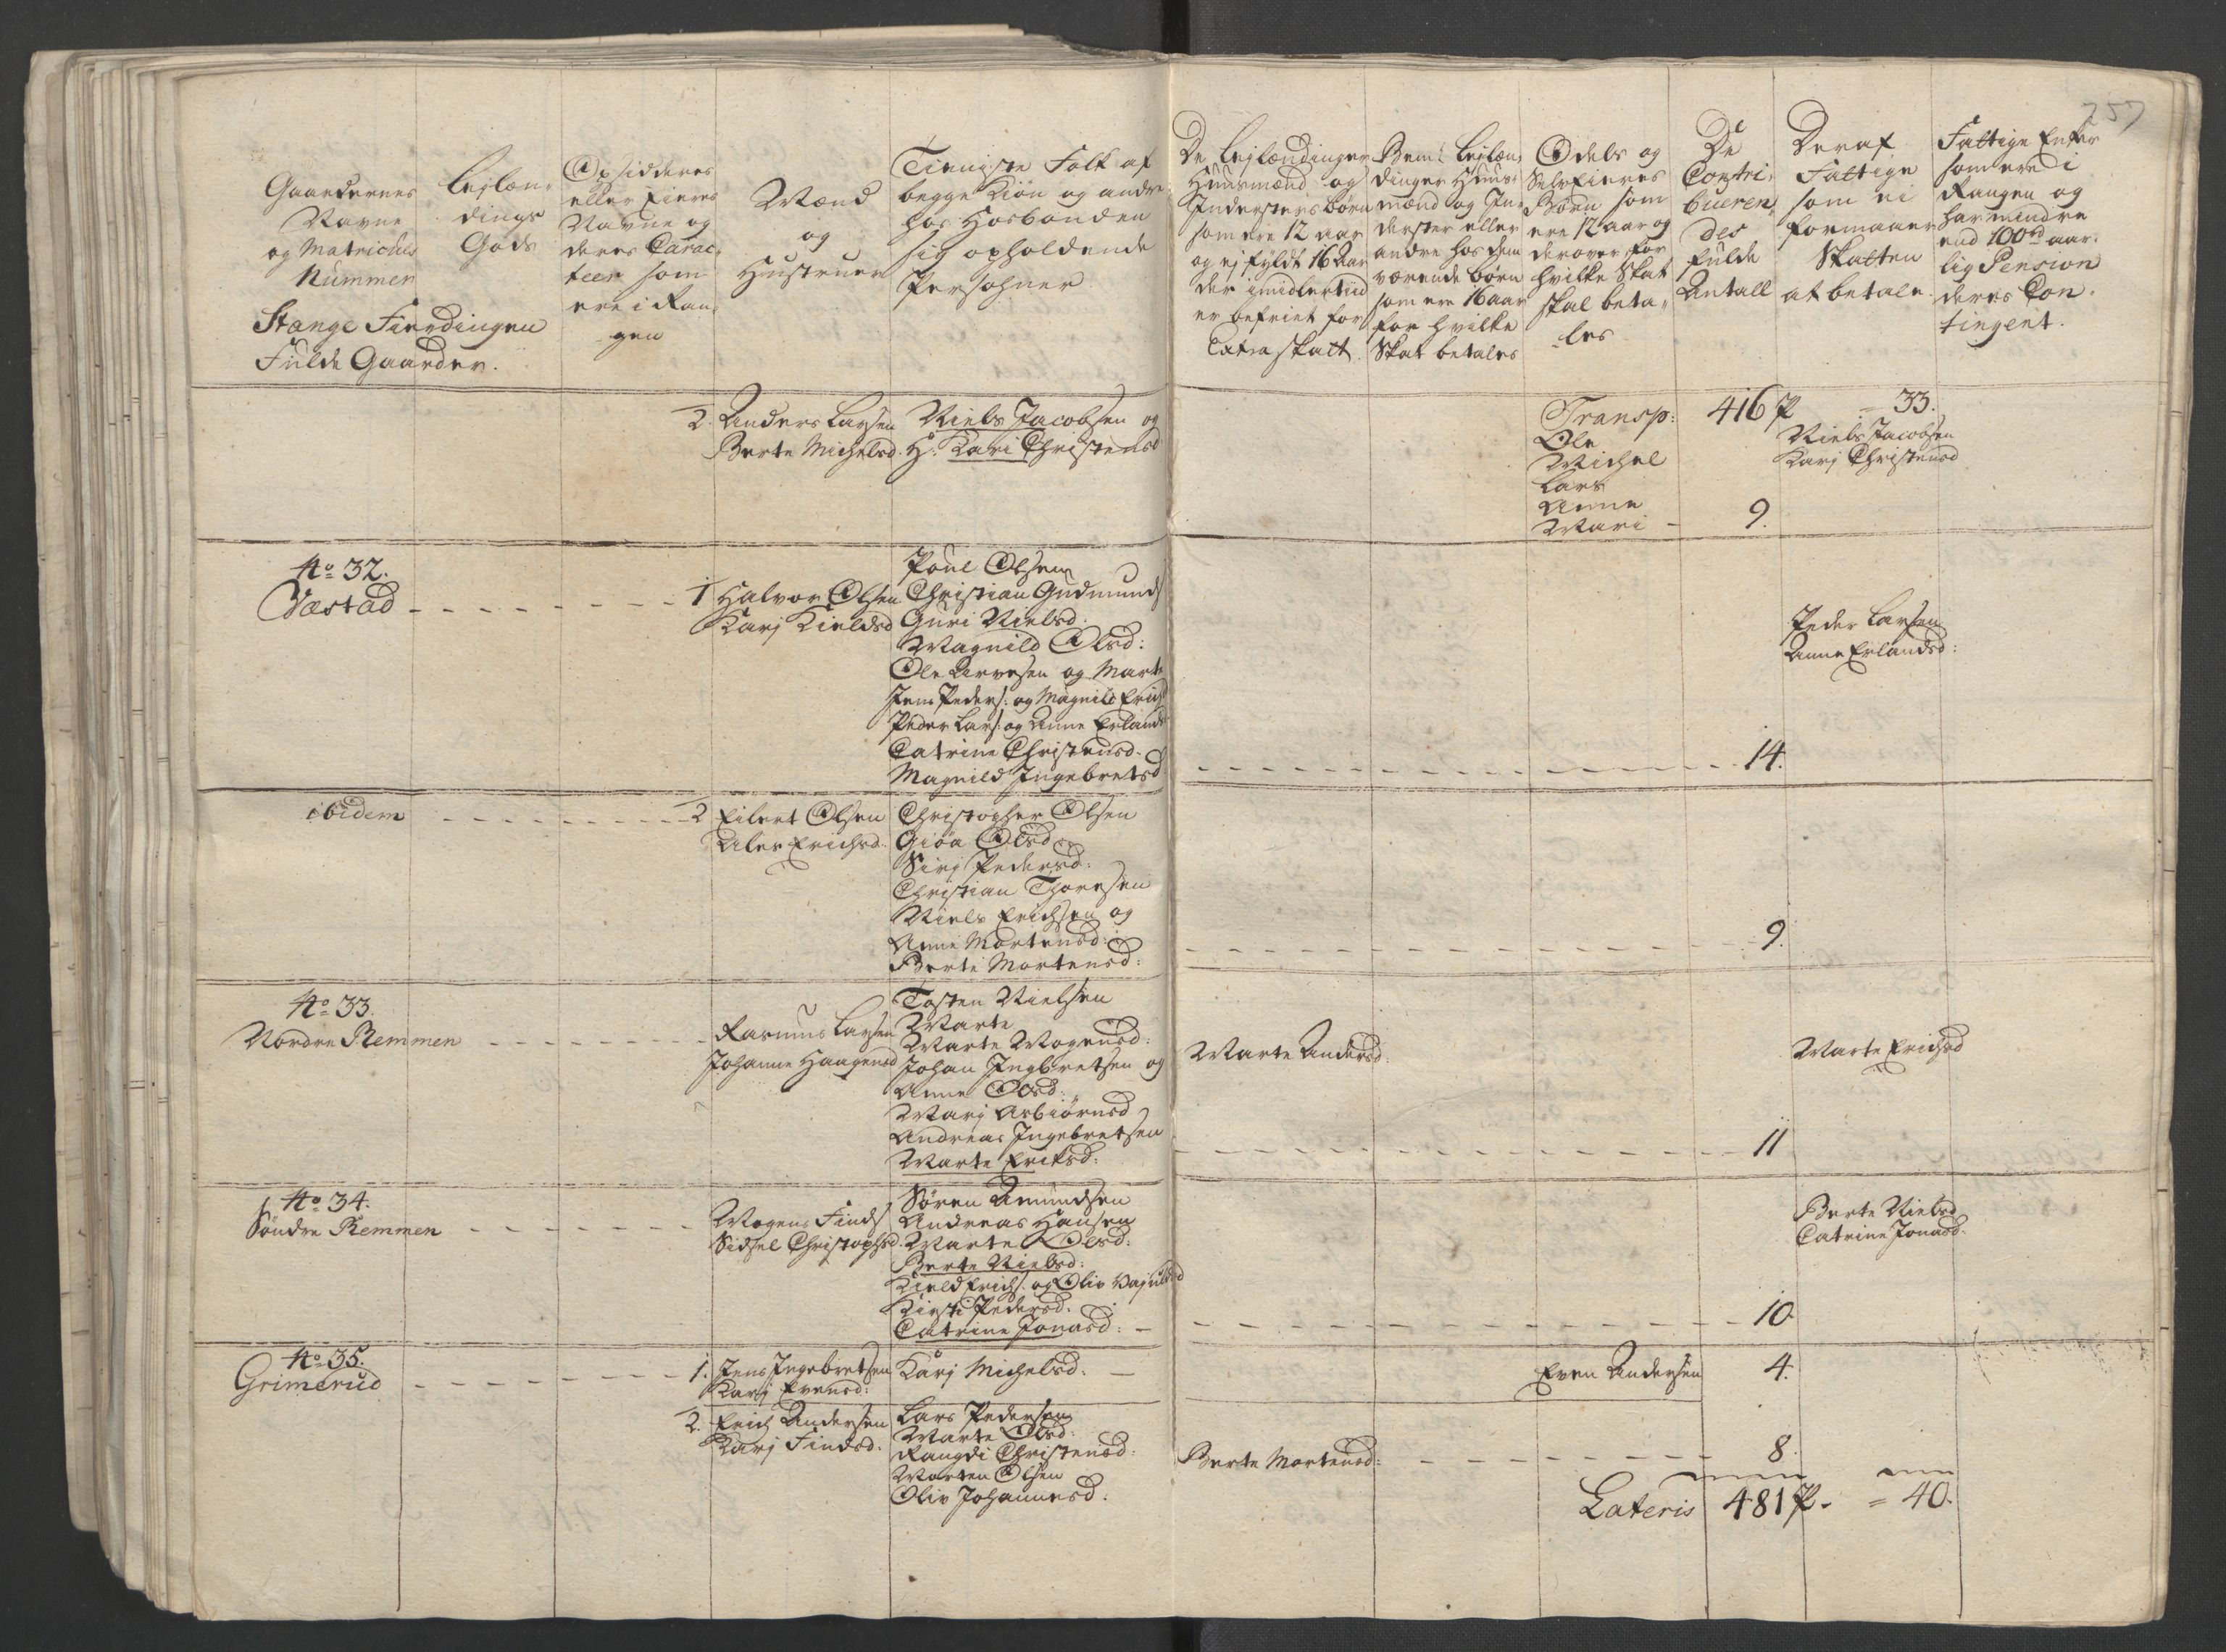 257
Gaardernes
Navne
og Matriculs
Nummer
Stange Fierdingen
Fulde Gaarder.
Lejlæn-
dings
Gods
Opsidderes
eller Eieres
Navne og
deres Carac-
teer som
ere i Ran-
gen
Mænd
og
Hustruer
Tieniste Folk af
begge Kiøn og andre
hos Hosbonden
sig opholdende
Persohner
De Lejlændinger
Huusmænd og
Inderstersbørn
som ere 12 aar
og ej fyldt 16 Aar
der imidlertiid
er befriet for
Extraskatt
Bem: Lejlæn-
dinger Huus-
mænd og In-
derster eller
andre hos dem
værende børn
som ere 16 aar
for hvilke
Skat betales
Odels og
Selveieres
Børn som
ere 12 aar og
derover for
hvilke Skat
skal beta-
les
De
Contri-
bueren-
des
fulde
Antall
Deraf
Fattige
som ei
formaaer
Skatten
at betale.
Fattige Enker
som ere i
Rangen og
har mindre
end 100 rd aar-
lig Pension
deres Con-
tingent.
2. Anders Larsen
Berte Michelsd.
Niels Jacobsen og
H: Kari Christensd
Transp: 416 P 33.
Ole
Michel
Lars
Anne
Mari - 9.
Niels Jacobsen
Karj Christensd
No 32.
Væstad
1 Halvor Olsen
Karj Kieldsd
Poul Olsen
Christian Gudmunds
Guri Nielsd:
Magnild Olsd:
Ole Arvesen og Marte
Jens Peders: og Magnild Erichs
Peder Lars: og Anne Erlands
Catrine Christensd.
Magnild Ingebretsd
14.
Peder Larsen
Anne Erlandsd:
ibidem
2 Eilert Olsen
Aler Erichsd.
Christopher Olsen
Giøa Olsd
Sirj Pedersd:
Christian Thoresen
Niels Erichsen og
Anne Mortensd:
Berte Mortensd:
9.
No 33.
Nordre Remmen
Rasmus Larsen
Johanne Haagensd
Tosten Nielsen
Marte
Marte Mogensd:
Johan Ingbretsen og
Anne Olsd:
Marj Asbiørnsd
Andreas Ingebretsen
Marte Eriksd:
Marte Andersd:
11
Marte Erichsd
No 34.
Søndre Remmen
Mogens Finds
Sidsel Christophsd.
Søren Amundsen
Andreas Hansen
Marte Olsd:
Berte Nielsd:
Kield Erichs: og Oliv
Kirsti Pedersd.
Catrine Jonasd: -
10.
Berte Nielsd
Catrine Jonasd.
No 35.
Grimerud
1. Jens Ingebretsen
Karj Evensd:
Karj Michelsd. -
Even Andersen
4.
2. Erich Andersen
Karj Findsd.
Lars Pedersen
Marte Olsd:
Rangdi Christensd:
Morten Olsen
Oliv Johannesd:
Berte Mortensd:
8.
Lateris 481 P. = 40.